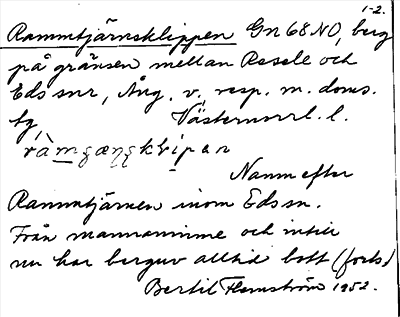 1-2.
Rammtjärnsklippen Gn 68 NO, berg
på gränsen mellan Resele och
Eds snr, Ång. v. resp. m. doms.
tg, Västernorrl. l.
Namn efter
Rammtjärnen inom Eds sn.
Från mannaminne och intill
nu har berguv alltid bott (forts)
Bertil Flemström 1952.